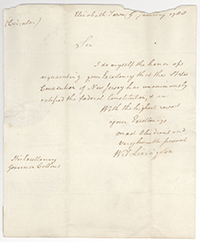 Elizabeth Town 9 January 1788
(Circular)
Sir
I do myself the honor of
requesting your Excellency that the State
Convention of New Jersey has unanimously
ratified the federal Constitution, &
With the highest respect
your Excellency's
most Obedient and
very humble servant
Wil. Livingston
His Excellency
Governor Collins